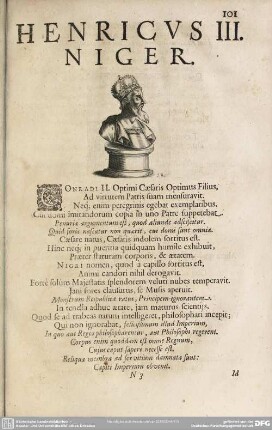 101
HENRICVS III.
NIGER.
CONRADI II. Optimi Cæsaris Optimus Filius,
Ad virtutem Patris suam mensuravit.
Neq; enim peregrinis egebat exemplaribus,
Cui omnium imitandorum copia in uno Patre suppetebat.
Penuriæ argumentum est, quod aliunde adsciscitur.
Quid sibi nascatur non quærit, cui domi sunt omnia.
Cæsare natus, Cæsaris indolem sortitus est.
Hinc neq; in pueritia quidquam humile exhibuit,
Præter staturam corporis, & ætatem.
NIGRI nomen, quod à capillo sortitus est,
Animi candori nihil derogavit.
Forte solùm Majestatis splendorem veluti nubes temperavit.
Jam fores clausurus, se Musis aperuit.
Monstrum Republica ratus, Principem ignorantem.
In tenella adhuc ætate, jam maturus scientiis.
Quod se ad trabeas natum intelligeret, philosophari incepit;
Qui non ignorabat, felicissimum illud Imperium,
In quo aut Reges philosopharentur, aut Philosophi regerent.
Corpus enim quoddam est omne Regnum,
Cujus caput sapere necesse est.
Reliqua membra ad servitium damnata sunt:
Capiti Imperium obvenit.
N 3
Id